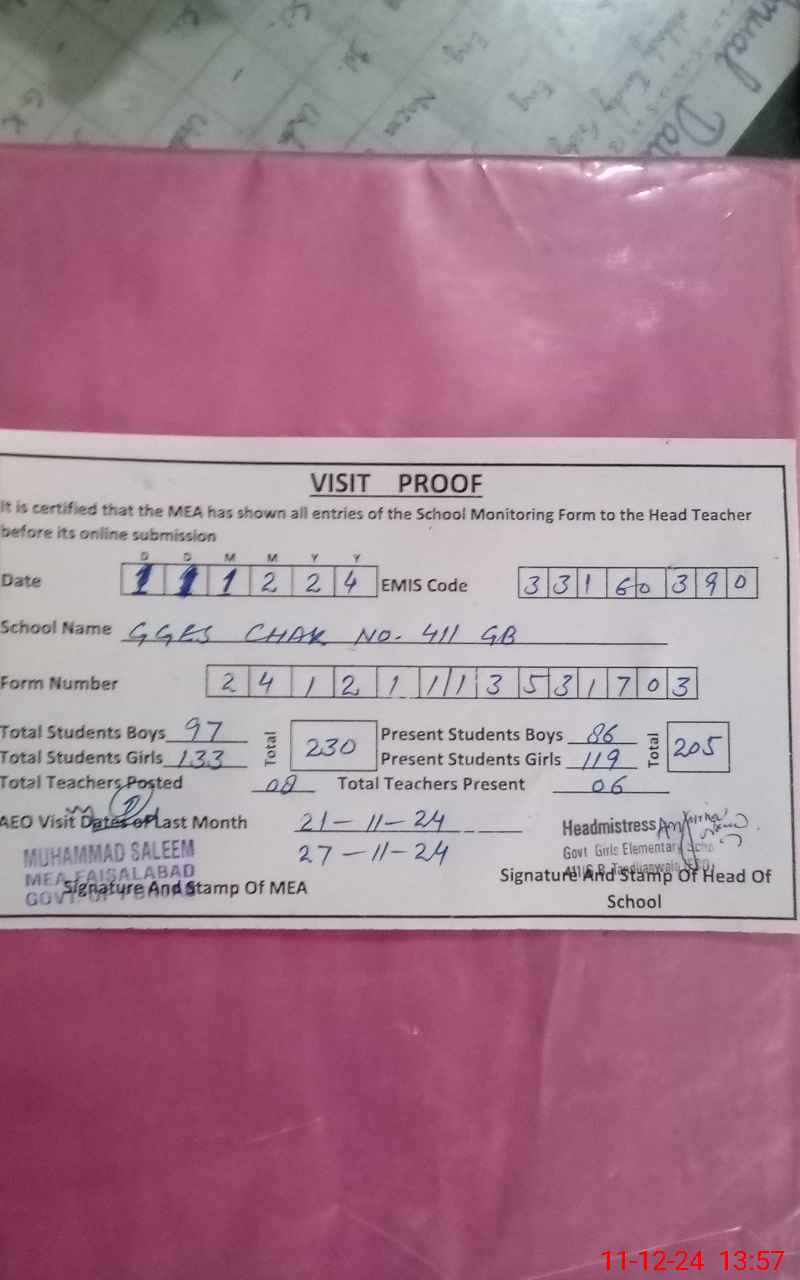 VISIT PROOF
It is certified that the MEA has shown all entries of the School Monitoring Form to the Head Teacher
before its online submission
D D M M Y Y
Date 1 1 1 2 2 4 EMIS Code 3 3 1 6 0 3 9 0
School Name GGES CHAK NO. 411 GB
Form Number 2 4 1 2 1 1 1 3 5 3 1 7 0 3
Total Students Boys 97 Total 230 Present Students Boys 86 Total 205
Total Students Girls 133 Present Students Girls 119
Total Teachers Posted 08 Total Teachers Present 06
AEO Visit Dates of Last Month 21-11-24 Headmistress
27-11-24
MUHAMMAD SALEEM Govt Girls Elementary
MEA FAISALABAD
GOVT OF
Signature And Stamp Of MEA Signature And Stamp Of Head Of
School
11-12-24 13:57